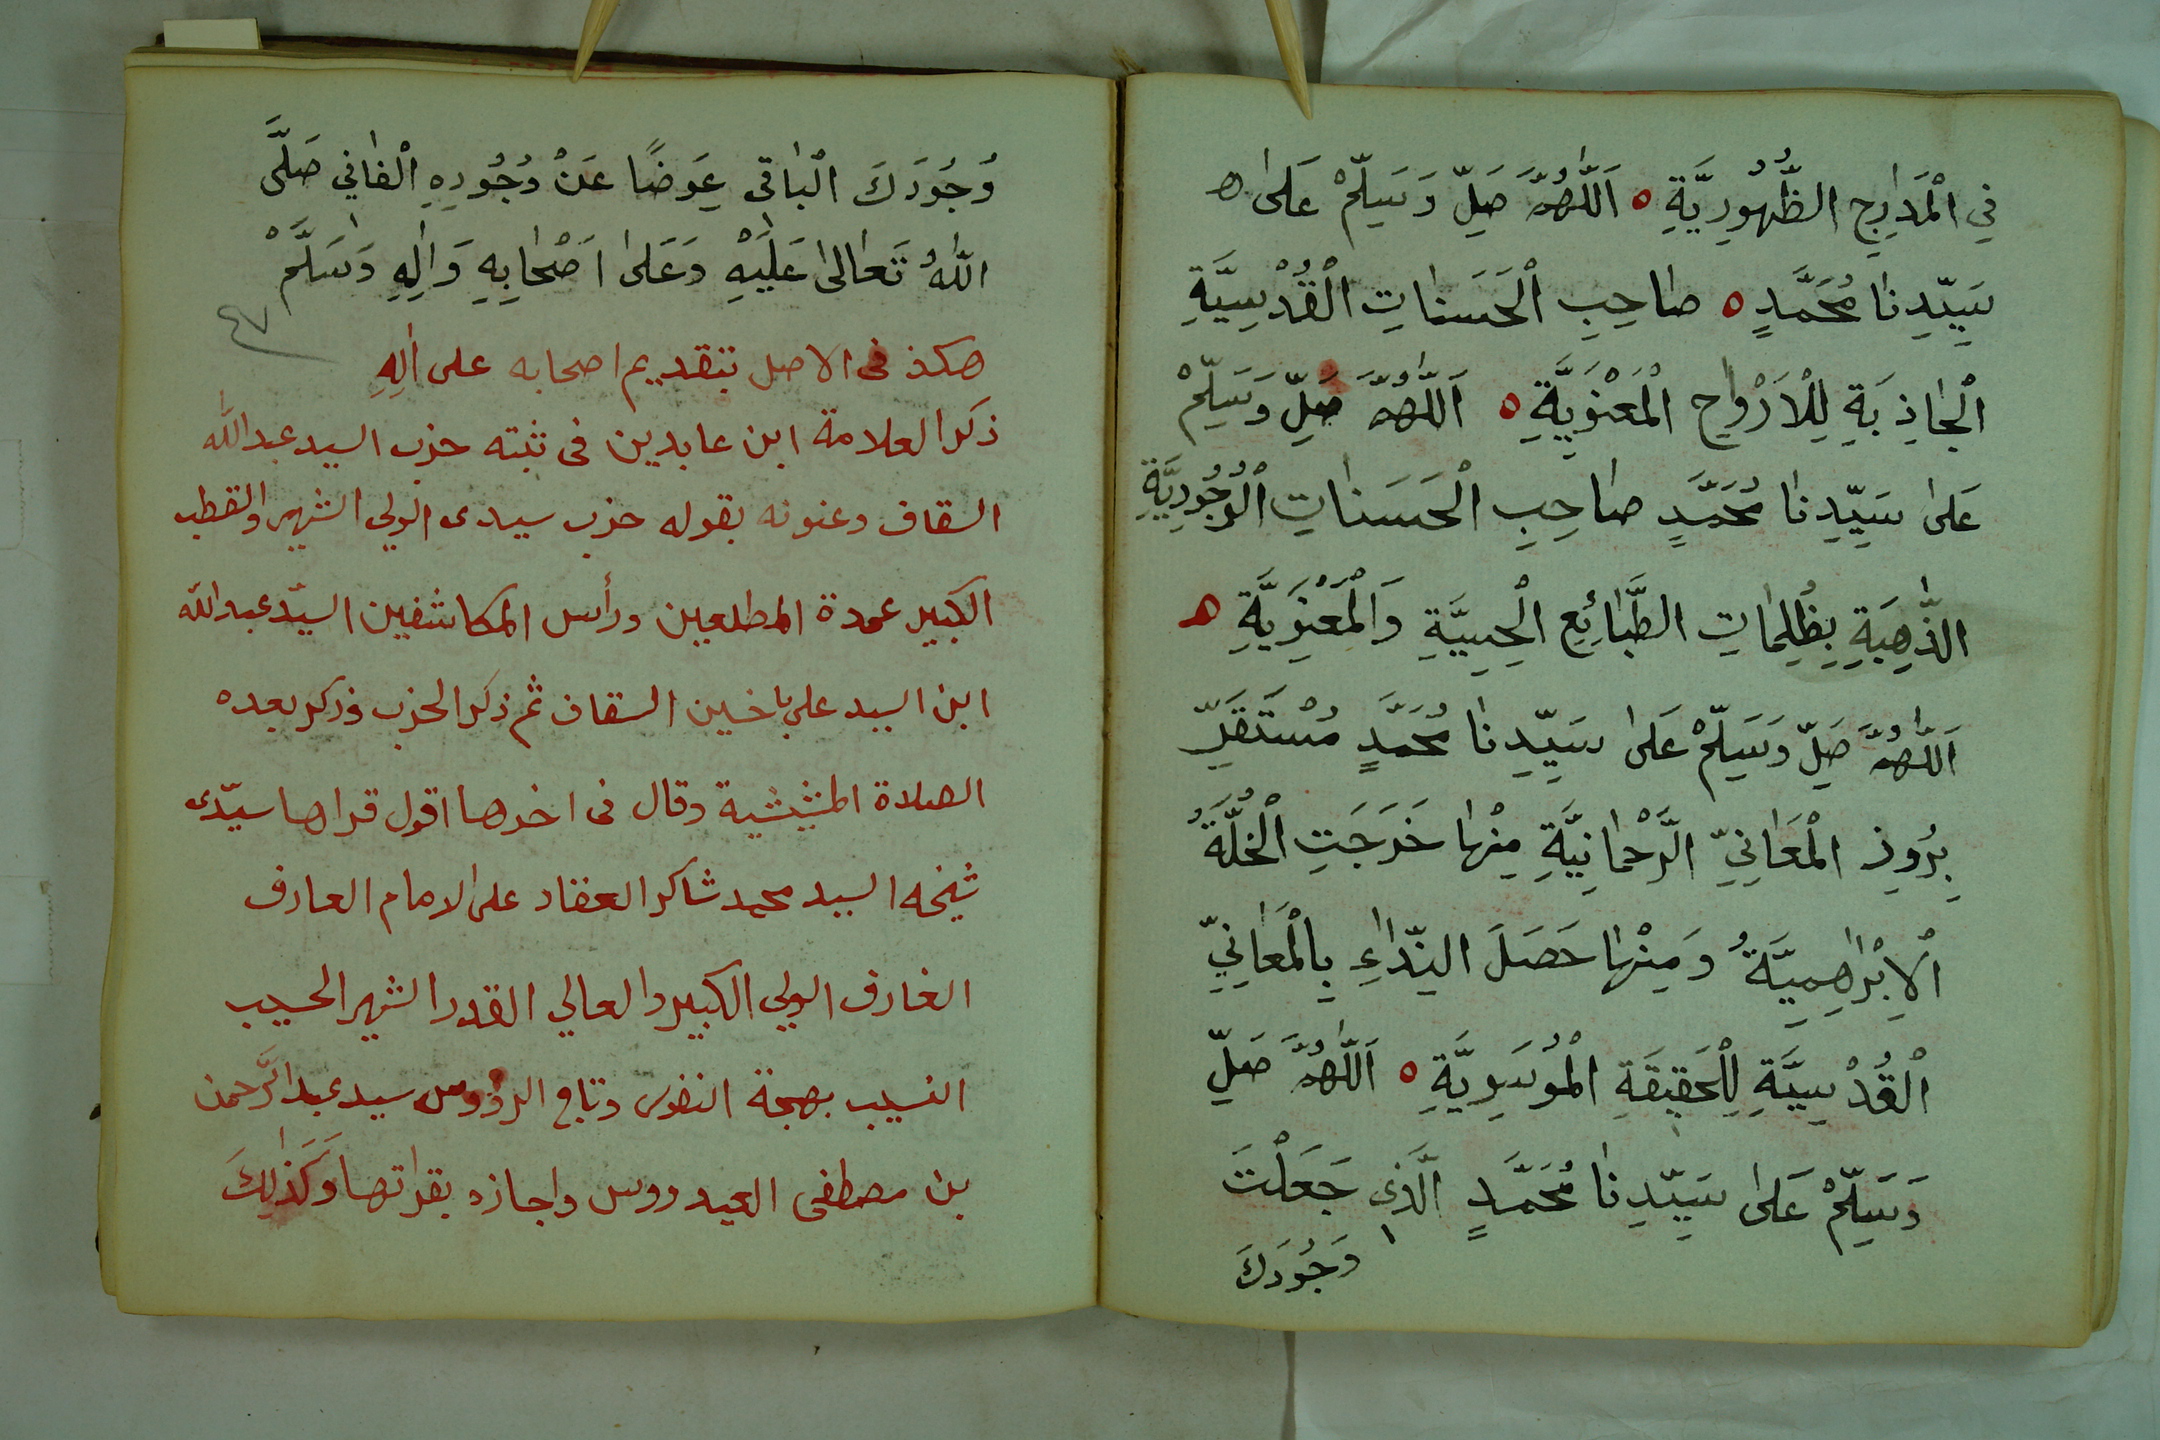 فِي الْمَدَارِجِ الظُّهُورِيَّةِ ه اَللّٰهُمَّ صَلِّ وَسَلِّمْ عَلٰى ه
سَيِّدِنَا مُحَمَّدٍ ه صَاحِبِ الْحَسَنَاتِ الْقُدْسِيَّةِ
الْجَاذِبَةِ لِلْاَرْوَاحِ الْمَعْنَوِيَّةِ ه اَللّٰهُمَّ صَلِّ وَسَلِّمْ
عَلٰى سَيِّدِنَا مُحَمَّدٍ صَاحِبِ الْحَسَنَاتِ الْوُجُودِيَّةِ
الذَّهِبَةِ بِظُلِمَاتِ الطَّبَائِعِ الْحِسِيَّةِ وَالْمَعْنَوِيَّةِ ه
اَللّٰهُمَّ صَلِّ وَسَلِّمْ عَلٰى سَيِّدِنَا مُحَمَّدٍ مُسْتَقَرِّ
بُرُوزِ الْمَعَانِيِّ الرَّحْمَانِيَّةِ مِنْهَا خَرَجَتِ الْخُلَّةُ
الْاِبْرَاهِمِيَّةُ وَمِنْهَا حَصَلَ النِّدَاءِ بِالْمَعَانِيِّ
الْقُدْسِيَّةِ لِلْحَقِيقَةِ الْمُوسَوِيَّةِ ه اَللّٰهُمَّ صَلِّ
وَسَلِّمْ عَلٰى سَيِّدِنَا مُحَمَّدٍ الَّذِي جَعَلْتَ
وَجُودَكَ
وُجُودَكَ الْبَاقِي عِوَضًا عَنْ وُجُودِهِ الْفَانِي صَلَّى
اللّٰهُ تَعَالٰى عَلَيْهِ وَعَلٰى اَصْحَابِهِ وَاٰلِهِ وَسَلَّمْ
٤٧
هكذ فى الاصل بتقديم اصحابه على اٰلِهِ
ذكر العلامة ابن عابدين فى ثبته حزب السيد عبد الله
السقاف وعنونه بقوله حزب سيدى الولي الشهير والقطب
الكبير عمدة المطلعين ورأس المكاشفين السيّد عبد الله
ابن السيد علي باحسين السقاف ثم ذكر الحزب وذكر بعده
الصلاة المشيشية وقال فى اخرها اقول قراها سيّدى
شيخه السيد محمد شاكر العقاد على الامام العارف
الغارف الولي الكبير والعالي القدر الشهير الحسيب
النسيب بهجة النفوس وتاج الرؤوس سيد عبد الرَّحمن
بن مصطفى العيدروس واجازه بقراتها وَكَذٰلِكَ